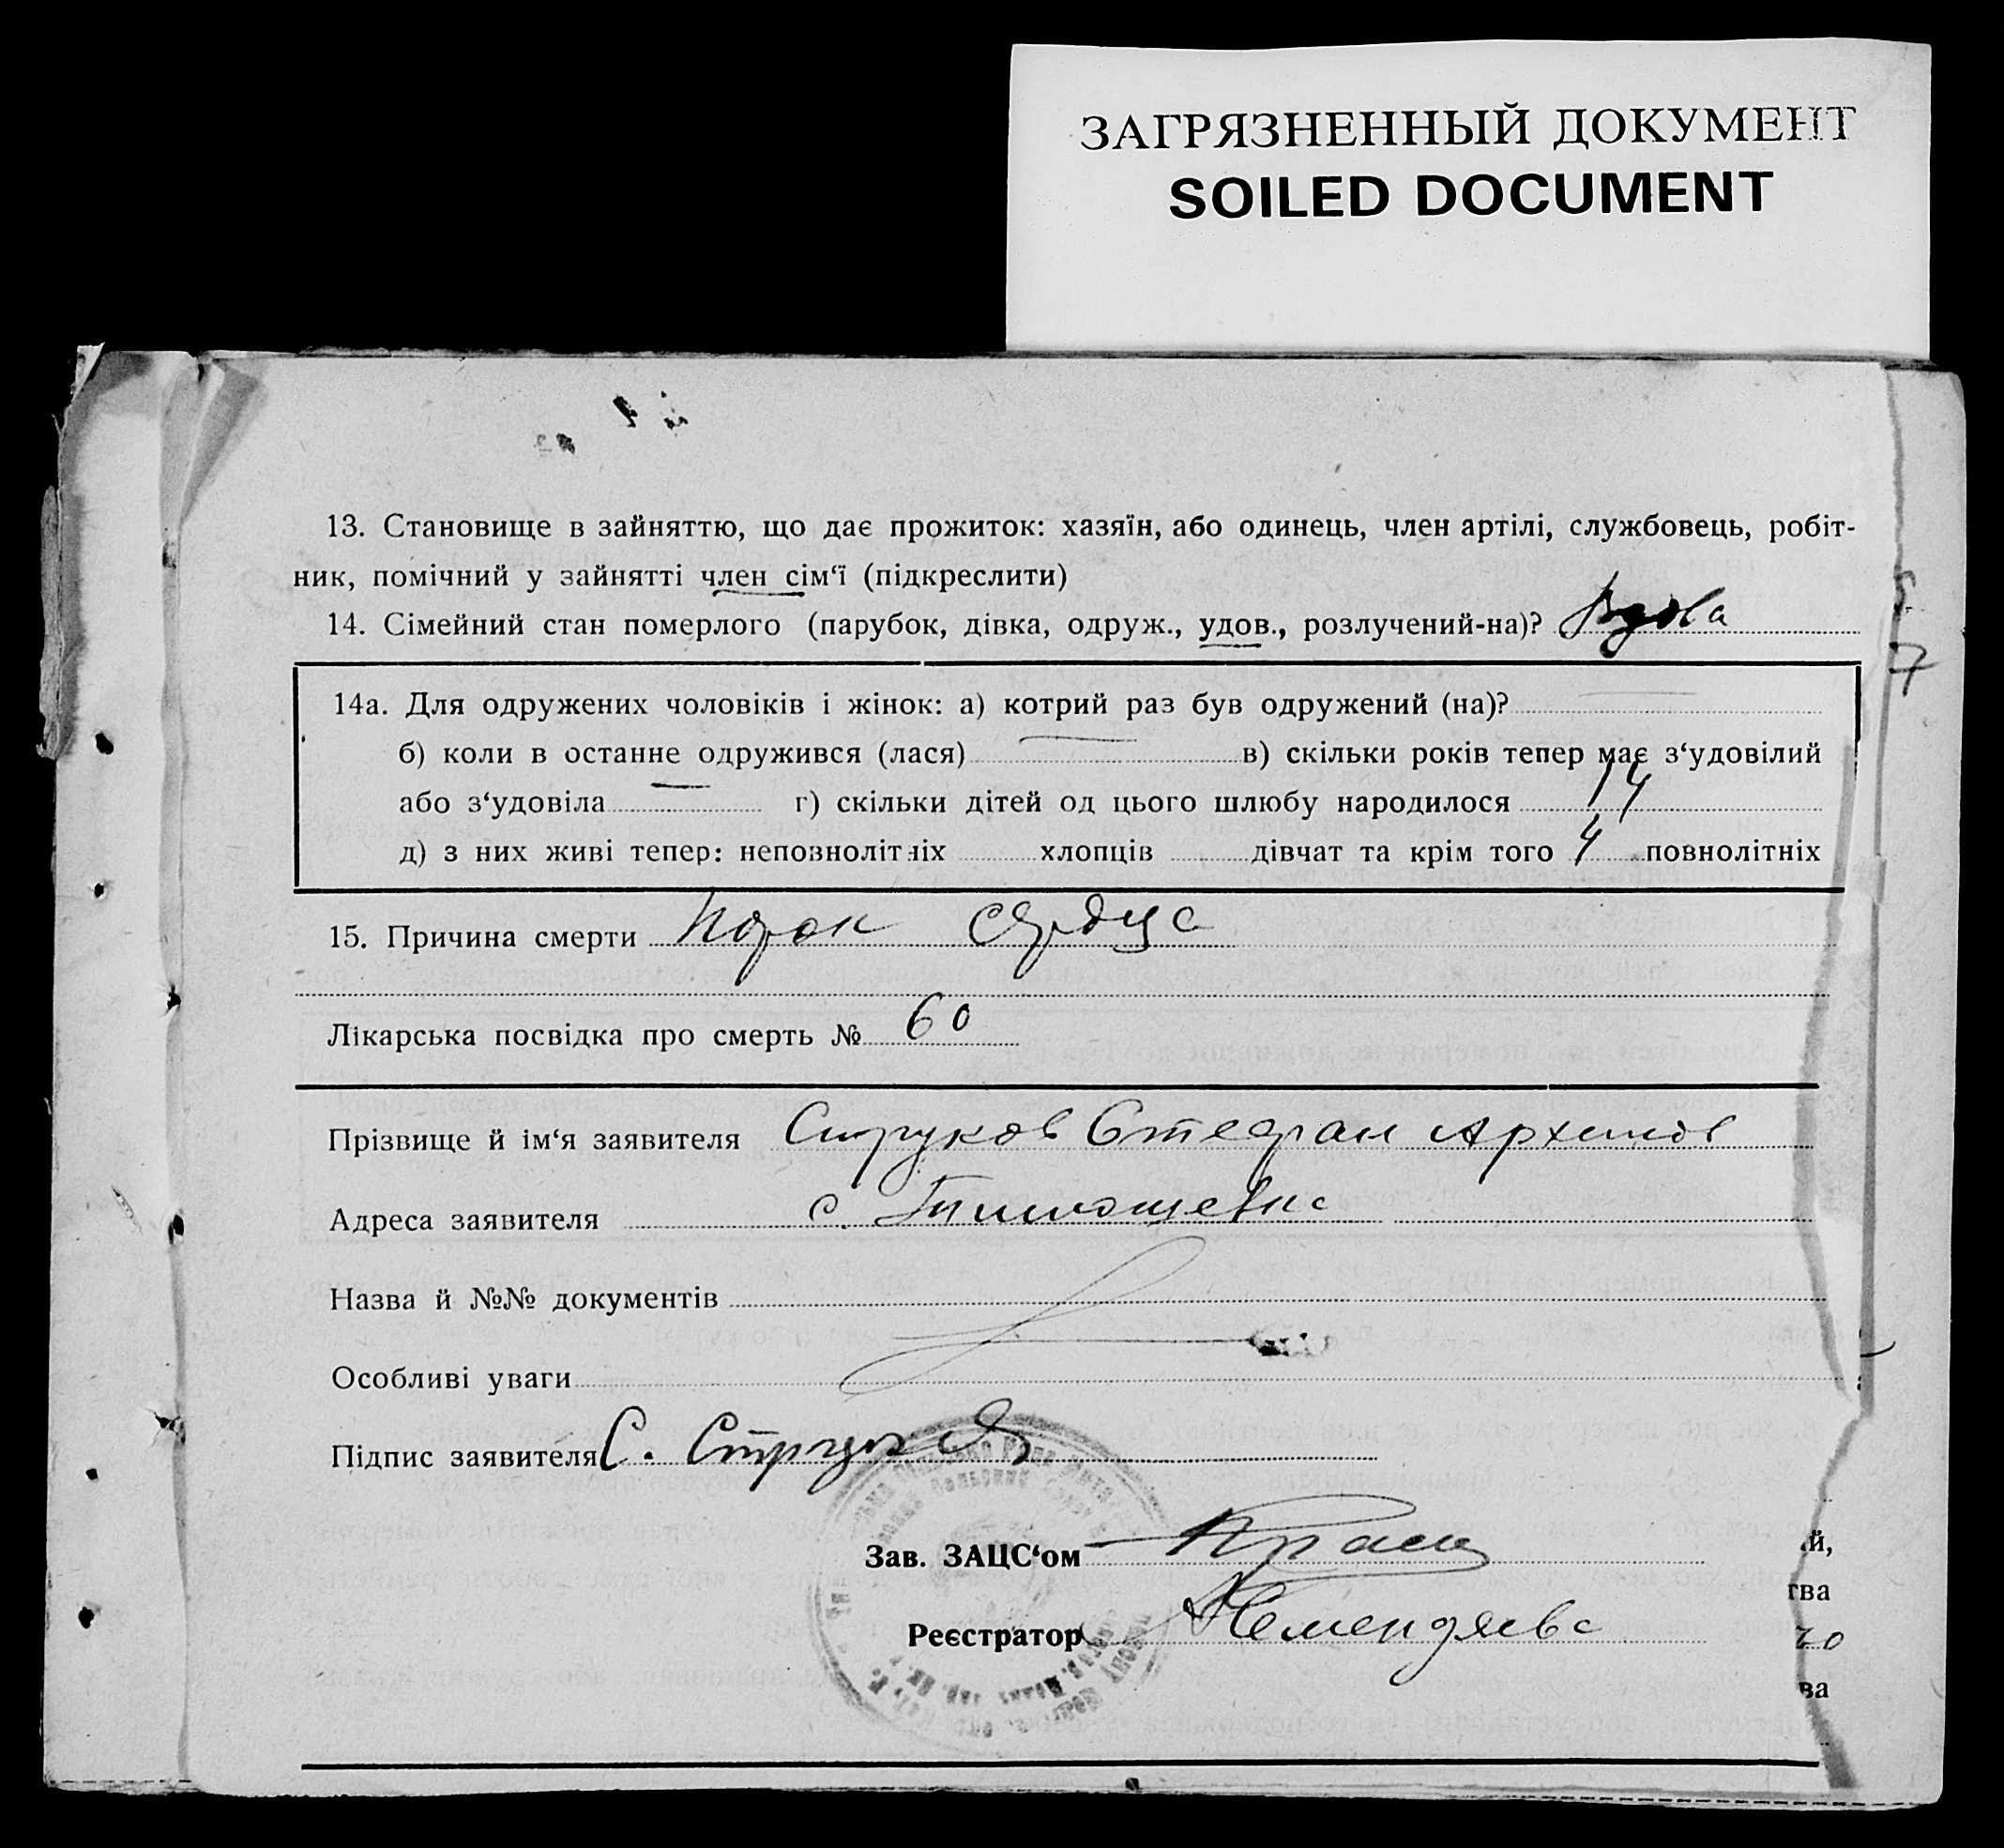 ЗАГРЯЗНЕННЫЙ ДОКУМЕНТ
SOILED DOCUMENT
13. Становище в зайняттю, що дає прожиток: хазяїн, або одинець, член артілі, службовець, робіт-
ник, помічний у зайнятті член сім‘ї (підкреслити)
14. Сімейний стан померлого (парубок, дівка, одруж., удов., розлучений-на)? Вдова
7
14а. Для одружених чоловіків і жінок: а) котрий раз був одружений (на)?
б) коли в останнє одружився (лася) в) скільки років тепер має з‘удовілий
або з‘удовіла г) скільки дітей од цього шлюбу народилося 14
д) з них живі тепер: неповнолітніх хлопців дівчат та крім того 4 повнолітніх
15. Причина смерти Порок сердца
Лікарська посвідка про смерть № 60
Прізвище й ім‘я заявителя Струков Стефан Архипов
Адреса заявителя с. Тимошевка
Назва й №№ документів
Особливі уваги
Підпис заявителя С. Струков
Зав. ЗАЦС‘ом
й,
тва
Реєстратор
го
ва